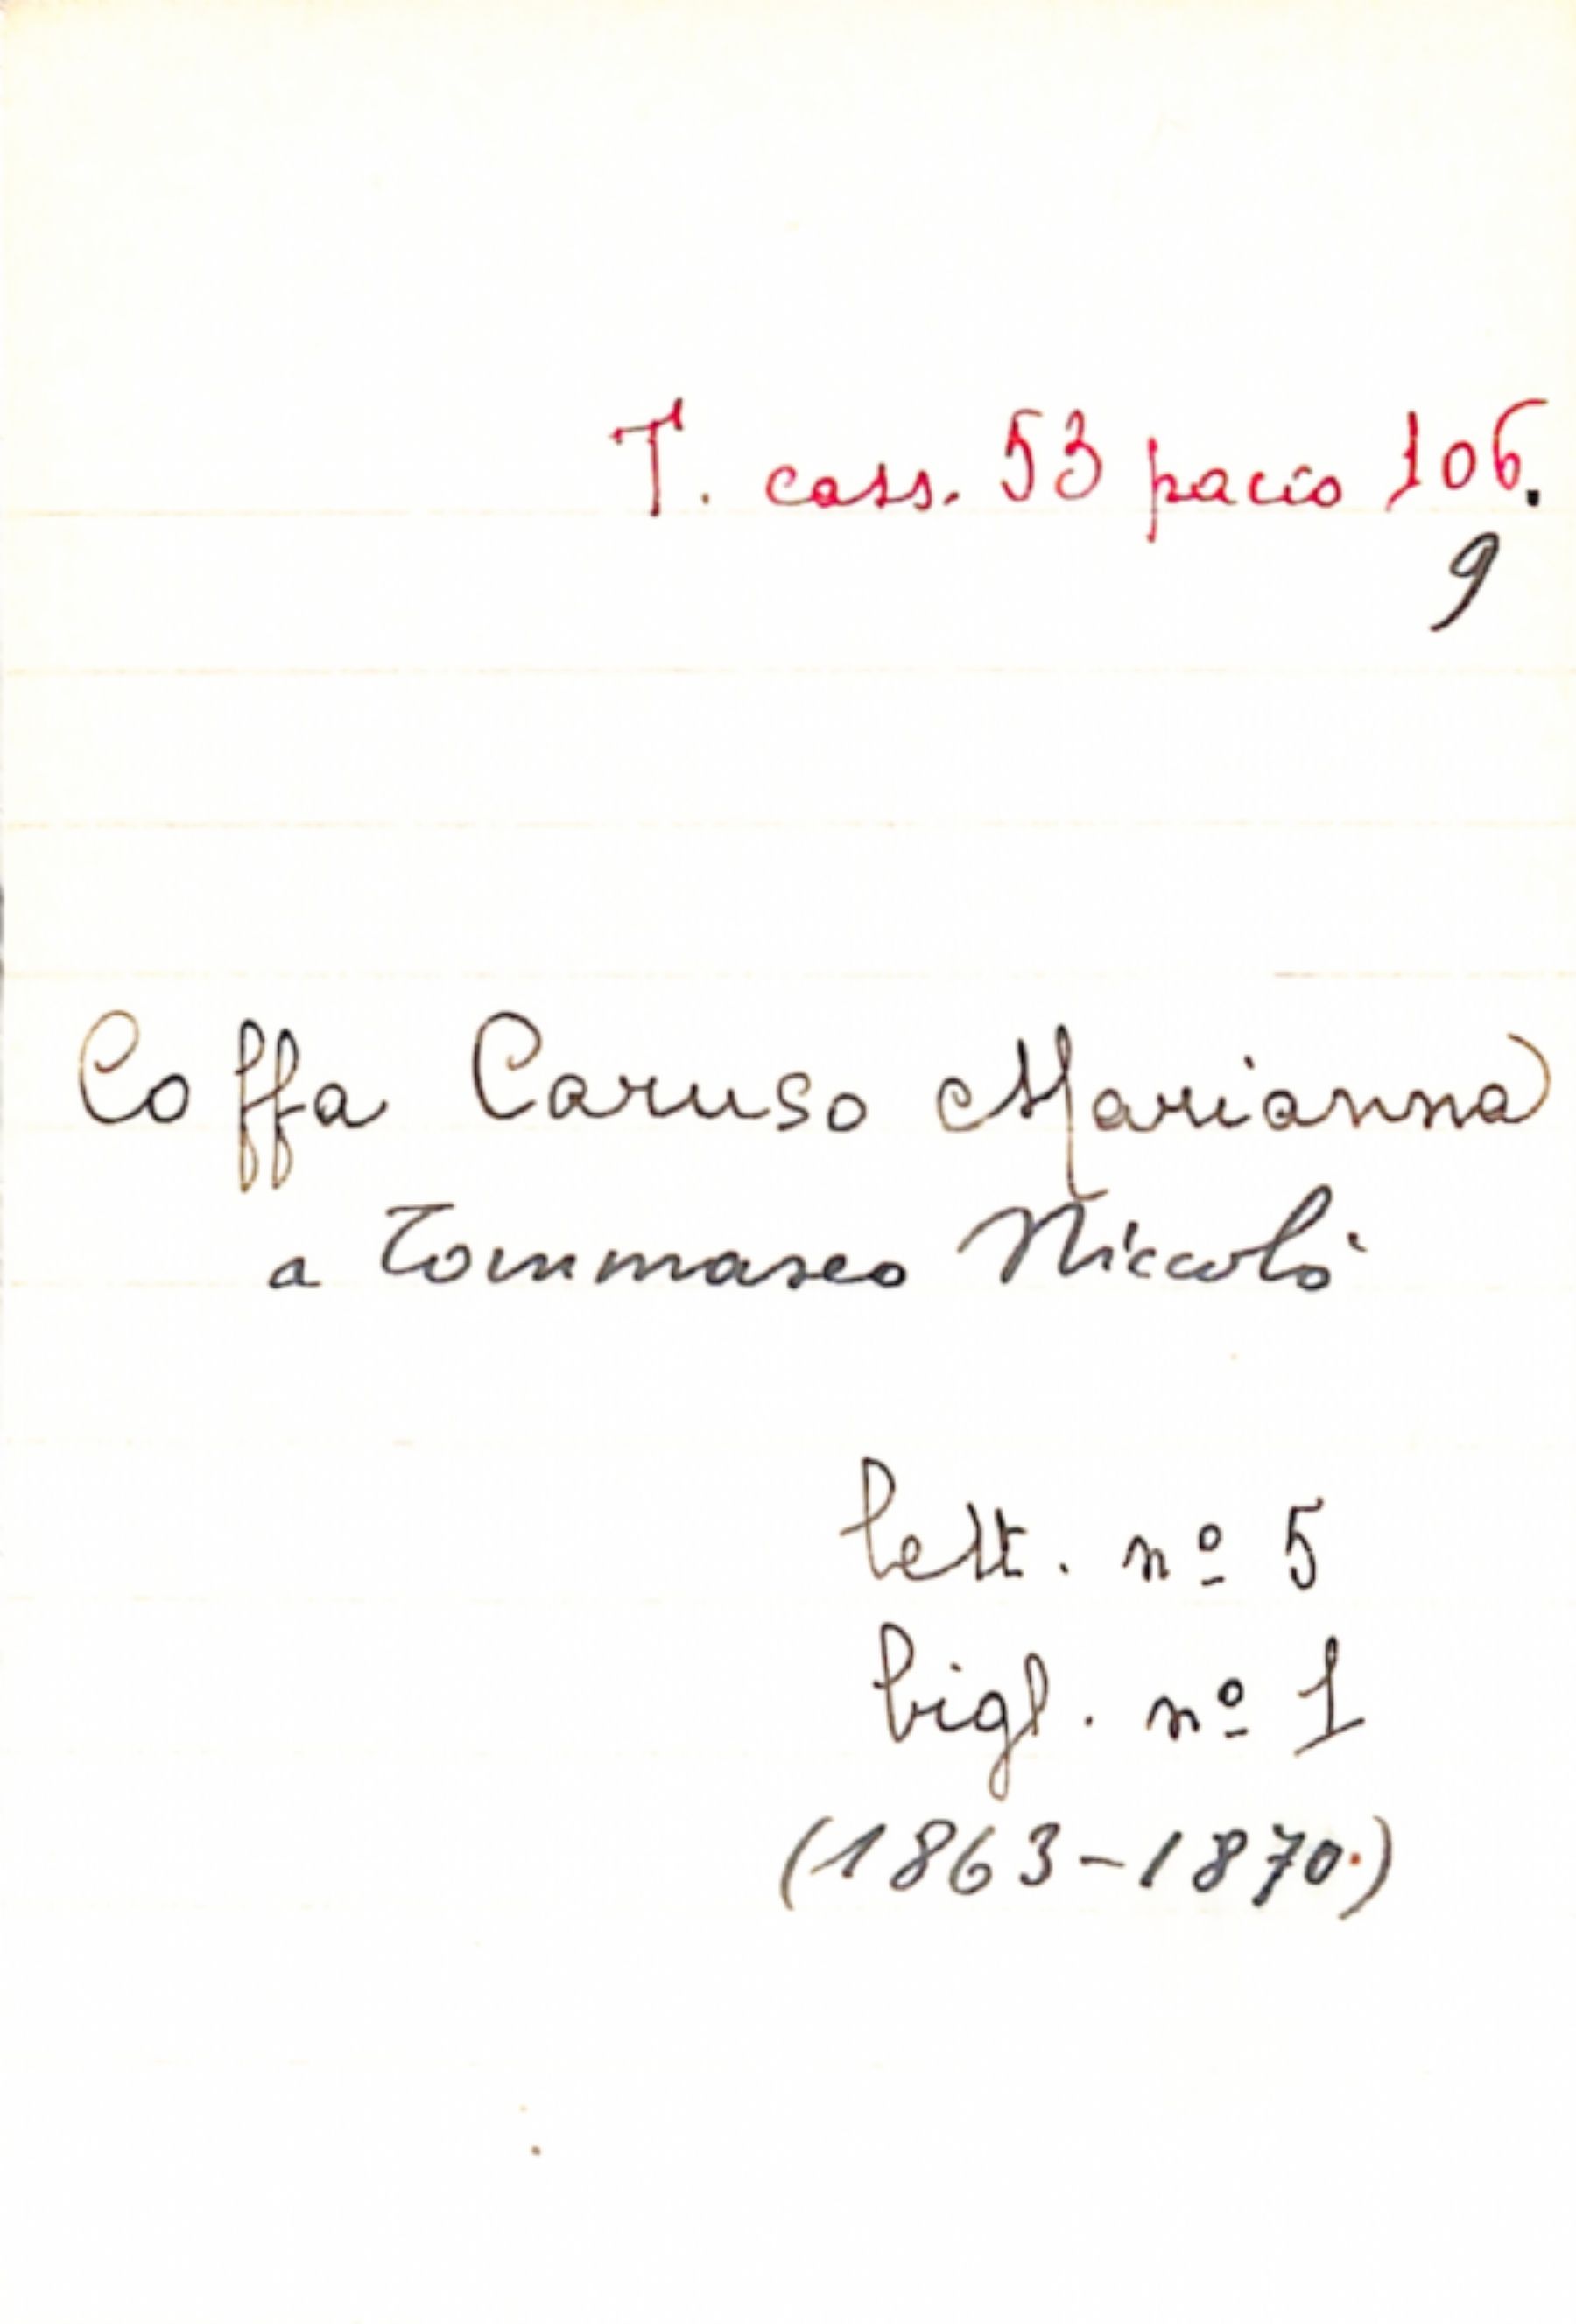 T. cass. 53 pacco 106.
9
Coffa Caruso Marianna
a Tommaseo Niccolò
lett. nº 5
bigl. nº 1
(1863-1870.)